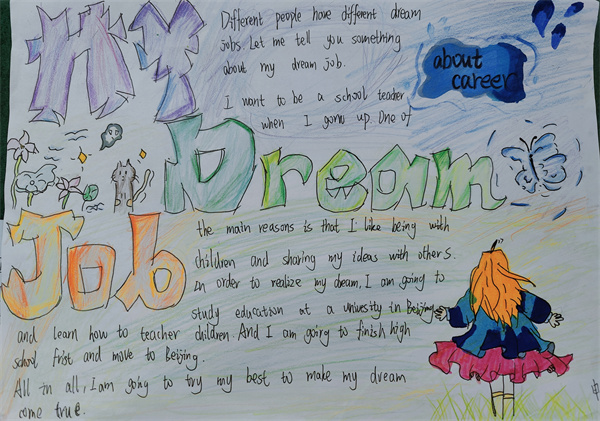 MY
Different people have different dream
jobs. Let me tell you something
about my dream job.
about
career
I want to be a school teacher
when I gorw up. One of
Dream
Job
the main reasons is that I like being with
children and sharing my ideas with others.
In order to realize my dream, I am going to
study education at a university in Beijing
and learn how to teacher children. And I am going to finish high
school frist and move to Beijing.
All in all, I am going to try my best to make my dream
come true.